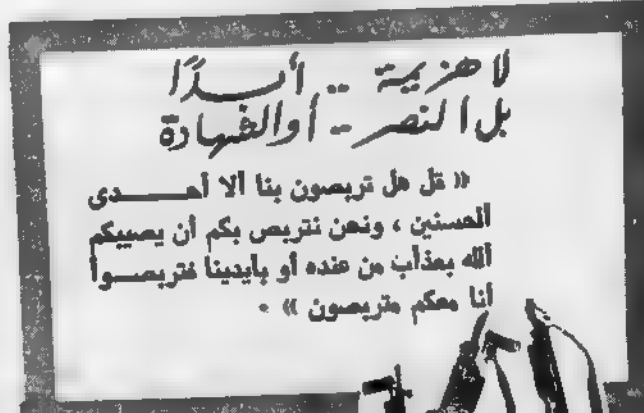 لا هزيمة .. أبــدًا
بل النصر .. أو الشهادة
« قل هل تربصون بنا الا أحــــدى
الحسنين ، ونحن نتربص بكم أن يصيبكم
الله بعذاب من عنده أو بأيدينا فتربصــوا
أنا معكم متربصون » .